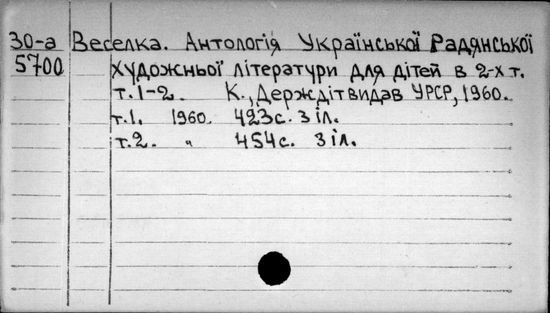 30-а Веселка. Антологія Української Радянської
5700 художньої літератури для дітей в 2-х т.
т.1-2. К., Держдітвидав УРСР, 1960.
т.1. 1960. 423с. З іл.
т.2. " 454с. З іл.